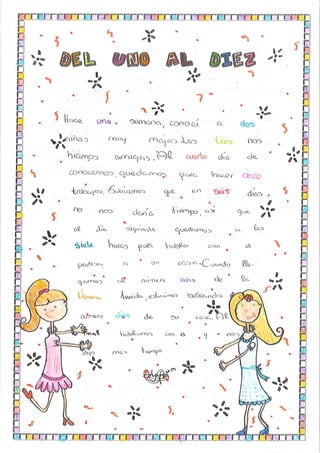 DEL UNO AL DIEZ
Hace una semana, conocí a dos
niñas muy majas. Las tres nos
hicimos amigas. Al cuarto día de
conocernos, quedamos para hacer cinco
trabajos. Sabíamos que en seis días
no nos daría tiempo, así que
al día siguiente quedamos a las
siete horas para hablar con el
en su casa. Cuando lle-
gamos al número ocho de la
Avenida, estuvimos buscando
número diez de su casa. Al
final hablamos con el y nos
dio más tiempo